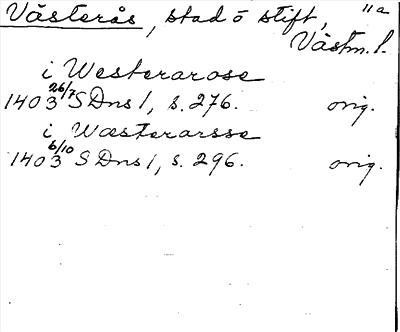 Västerås, stad o stift, 11a
Västm. l.
i Westerarose
1403 26/7 SDns 1, s. 276. orig.
i Wæsterarsse
1403 6/10 SDns 1, s. 296. orig.